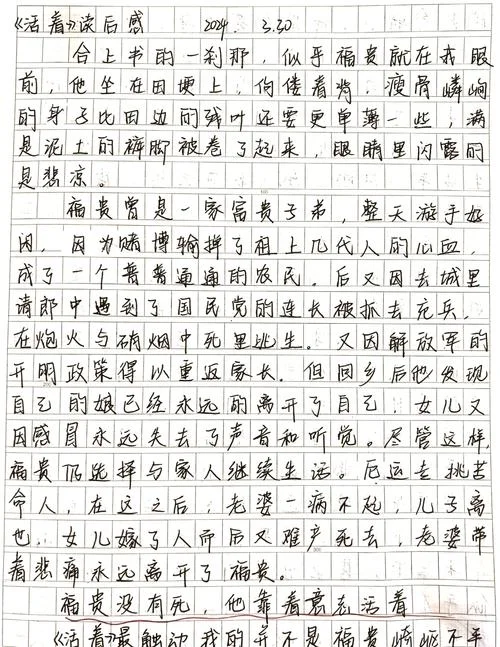 《活着》读后感 2024. 3.30
合上书的一刹那，似乎福贵就在我眼
前，他坐在田埂上，佝偻着背，瘦骨嶙峋
的身子比田边的残叶还要更单薄一些，满
是泥土的裤脚被卷了起来，眼睛里闪露的
是悲凉。
福贵曾是一家富贵子弟，整天游手好
闲，因为赌博输掉了祖上几代人的心血，
成了一个普普通通的农民。后又因去城里
请郎中遇到了国民党的连长被抓去充兵，
在炮火与硝烟中死里逃生。又因解放军的
开明政策得以重返家长。但回乡后他发现
自己的娘已经永远的离开了自己，女儿又
因感冒永远失去了声音和听觉。尽管这样，
福贵仍选择与家人继续生活。厄运去挑苦
命人，在这之后，老婆一病不起，儿子离
世，女儿嫁了人而后又难产死去，老婆带
着悲痛永远离开了福贵。
福贵没有死，他靠着意志活着
《活着》最触动我的并不是福贵崎岖不平